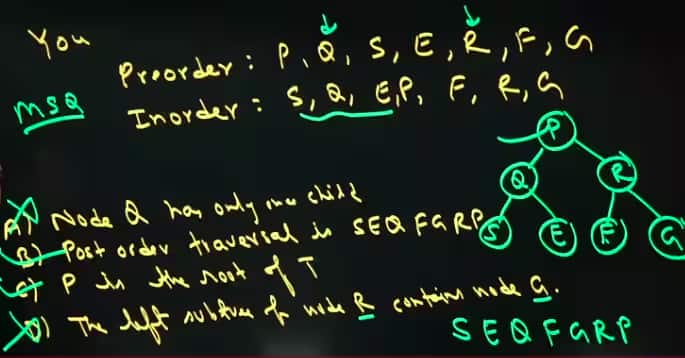 You
Preorder : P, Q, S, E, R, F, G
MSQ
Inorder : S, Q, E, P, F, R, G
P
Q
R
S
E
F
G
A) Node Q has only one child
B) Post order traversal is SEQFGRP
C) P is the root of T
D) The left subtree of node R contains node G.
SEQFGRP